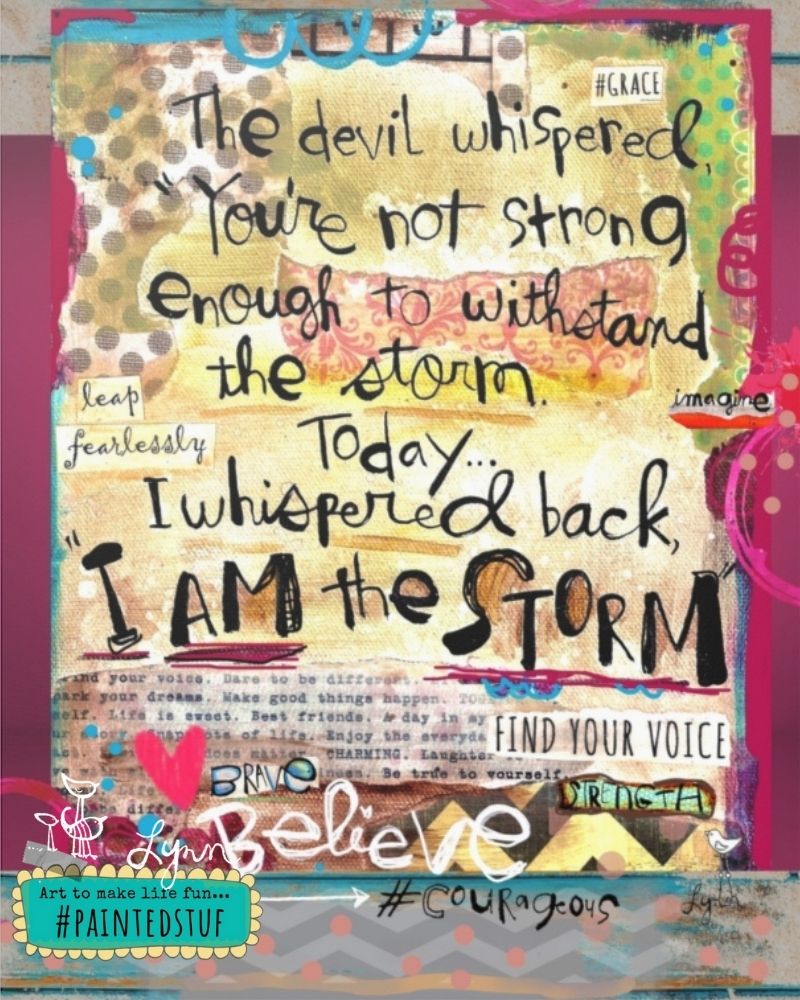 #GRACE
The devil whispered,
"You're not strong
enough to withstand
the storm.
leap
imagine
fearlessly
Today...
I whispered back,
"I AM the STORM"
ind your voice. Dare to be different.
ark your dreams. Make good things happen.
elf. Life is sweet. Best friends. A day in my
of life. Enjoy the everyda
does matter. CHARMING. Laughter
FIND YOUR VOICE
Be true to yourself.
BRAVE
STRENGTH
Believe
Lynn
Art to make life fun...
#PAINTEDSTUF
#COURAGEOUS